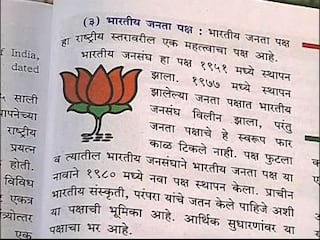 (३) भारतीय जनता पक्ष : भारतीय जनता पक्ष
हा राष्ट्रीय स्तरावरील एक महत्त्वाचा पक्ष आहे.
भारतीय जनसंघ हा पक्ष १९५१ मध्ये स्थापन
झाला. १९७७ मध्ये स्थापन
झालेल्या जनता पक्षात भारतीय
जनसंघ विलीन झाला, परंतु
जनता पक्षाचे हे स्वरूप फार
काळ टिकले नाही. पक्ष फुटला
व त्यातील भारतीय जनसंघाने भारतीय जनता पक्ष या
नावाने १९८० मध्ये नवा पक्ष स्थापन केला. प्राचीन
भारतीय संस्कृती, परंपरा यांचे जतन केले पाहिजे अशी
या पक्षाची भूमिका आहे. आर्थिक सुधारणांवर या
पक्षाचा भर आहे.
of India,
dated
साली
राष्ट्रीय
प्रयत्न
होती.
विविध
एकत्र